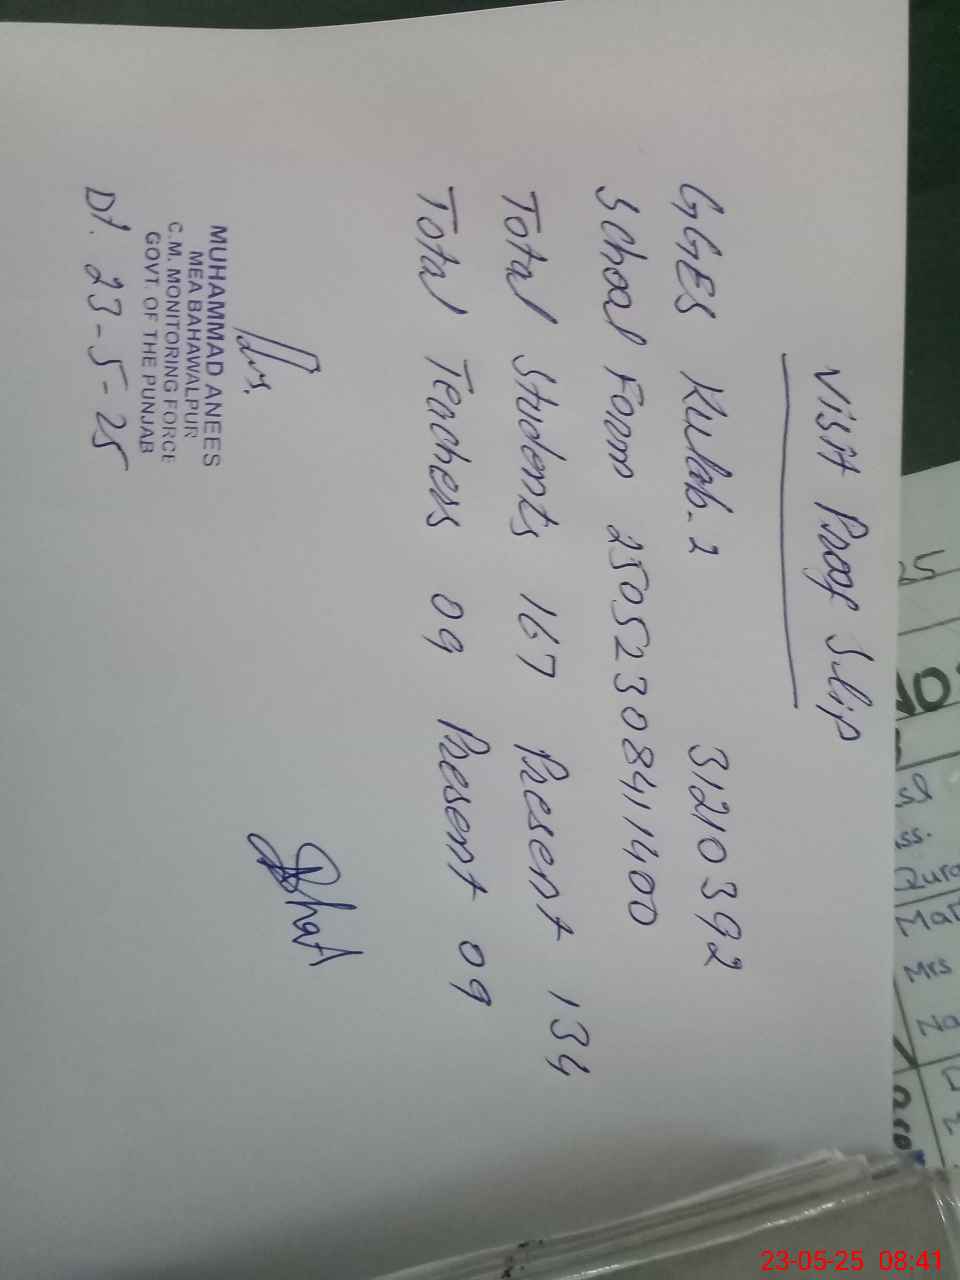 Visit Proof Slip
GGES Kulab-2 31210392
School Form 25052308411400
Total Students 167 Present 134
Total Teachers 09 Present 09
MUHAMMAD ANEES
MEA BAHAWALPUR
C.M. MONITORING FORCE
GOVT. OF THE PUNJAB
Dt. 23-5-25
25
Mrs
23-05-25 08:41